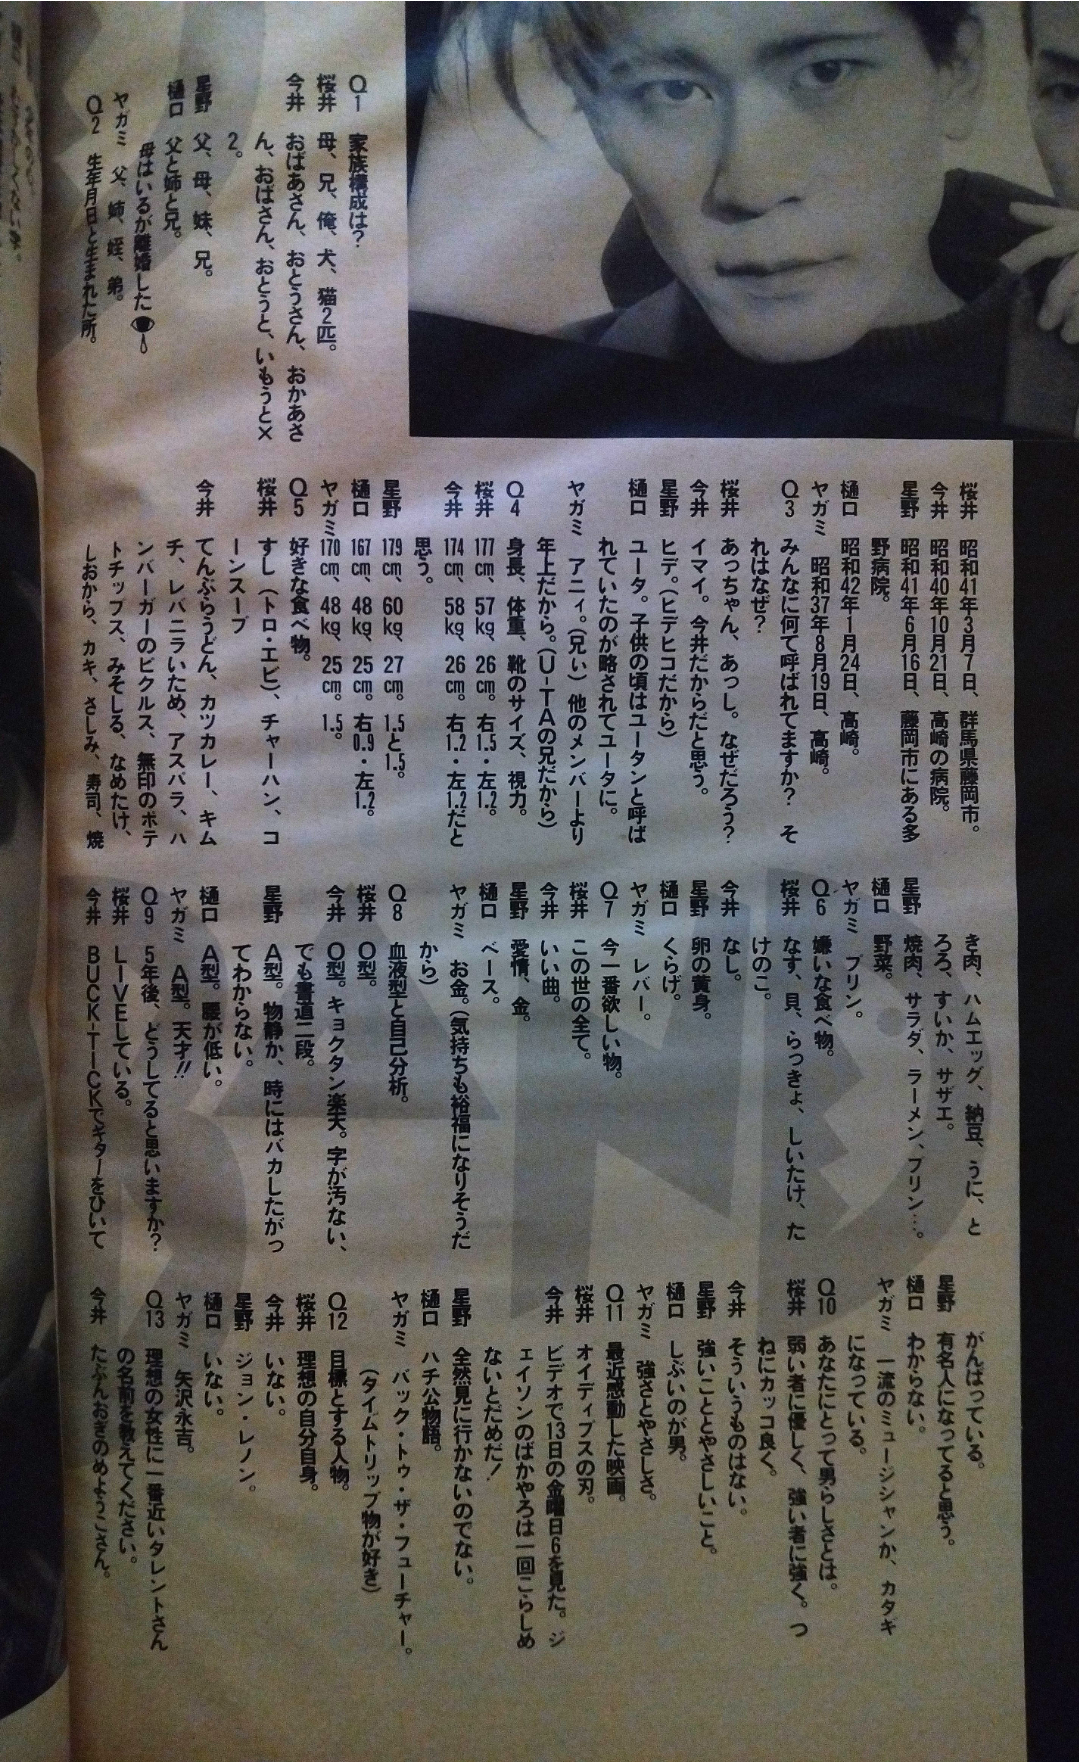 Q1　家族構成は？
桜井　母、兄、俺、犬、猫2匹。
今井　おばあさん、おとうさん、おかあさ
ん、おばさん、おとうと、いもうと×
2。
星野　父、母、妹、兄。
樋口　父と姉と兄。
母はいるが離婚した
ヤガミ　父、姉、姪、弟。
Q2　生年月日と生まれた所。
桜井　昭和41年3月7日、群馬県藤岡市。
今井　昭和40年10月21日、高崎の病院。
星野　昭和41年6月16日、藤岡市にある多
野病院。
樋口　昭和42年1月24日、高崎。
ヤガミ　昭和37年8月19日、高崎。
Q3　みんなに何て呼ばれてますか？　そ
れはなぜ？
桜井　あっちゃん、あっし。なぜだろう？
今井　イマイ。今井だからだと思う。
星野　ヒデ。（ヒデヒコだから）
樋口　ユータ。子供の頃はユータンと呼ば
れていたのが略されてユータに。
ヤガミ　アニィ。（兄ぃ）他のメンバーより
年上だから。（U-TAの兄だから）
Q4　身長、体重、靴のサイズ、視力。
桜井　177cm、57kg、26cm。右1.5・左1.2。
今井　174cm、58kg、26cm。右1.2・左1.2だと
思う。
星野　179cm、60kg、27cm。1.5と1.5。
樋口　167cm、48kg、25cm。右0.9・左1.2。
ヤガミ　170cm、48kg、25cm。1.5。
Q5　好きな食べ物。
桜井　すし（トロ・エビ）、チャーハン、コ
ーンスープ
今井　てんぷらうどん、カツカレー、キム
チ、レバニラいため、アスパラ、ハ
ンバーガーのピクルス、無印のポテ
トチップス、みそしる、なめたけ、
しおから、カキ、さしみ、寿司、焼
き肉、ハムエッグ、納豆、うに、と
ろろ、すいか、サザエ。
星野　焼肉、サラダ、ラーメン、プリン…。
樋口　野菜。
ヤガミ　プリン。
Q6　嫌いな食べ物。
桜井　なす、貝、らっきょ、しいたけ、た
けのこ。
今井　なし。
星野　卵の黄身。
樋口　くらげ。
ヤガミ　レバー。
Q7　今一番欲しい物。
桜井　この世の全て。
今井　いい曲。
星野　愛情、金。
樋口　ベース。
ヤガミ　お金。（気持ちも裕福になりそうだ
から）
Q8　血液型と自己分析。
桜井　O型。
今井　O型。キョクタン楽天。字が汚ない、
でも書道二段。
星野　A型。物静か、時にはバカしたがっ
てわからない。
樋口　A型。腰が低い。
ヤガミ　A型。天才!!
Q9　5年後、どうしてると思いますか？
桜井　LIVEしている。
今井　BUCK-TICKでギターをひいて
がんばっている。
星野　有名人になってると思う。
樋口　わからない。
ヤガミ　一流のミュージシャンか、カタギ
になっている。
Q10　あなたにとって男らしさとは。
桜井　弱い者に優しく、強い者に強く。つ
ねにカッコ良く。
今井　そういうものはない。
星野　強いこととやさしいこと。
樋口　しぶいのが男。
ヤガミ　強さとやさしさ。
Q11　最近感動した映画。
桜井　オイディプスの刃。
今井　ビデオで13日の金曜日6を見た。ジ
ェイソンのばかやろは一回こらしめ
ないとだめだ！
星野　全然見に行かないのでない。
樋口　ハチ公物語。
ヤガミ　バック・トゥ・ザ・フューチャー。
（タイムトリップ物が好き）
Q12　目標とする人物。
桜井　理想の自分自身。
今井　いない。
星野　ジョン・レノン。
樋口　いない。
ヤガミ　矢沢永吉。
Q13　理想の女性に一番近いタレントさん
の名前を教えてください。
今井　たぶんおぎのめようこさん。
BAND